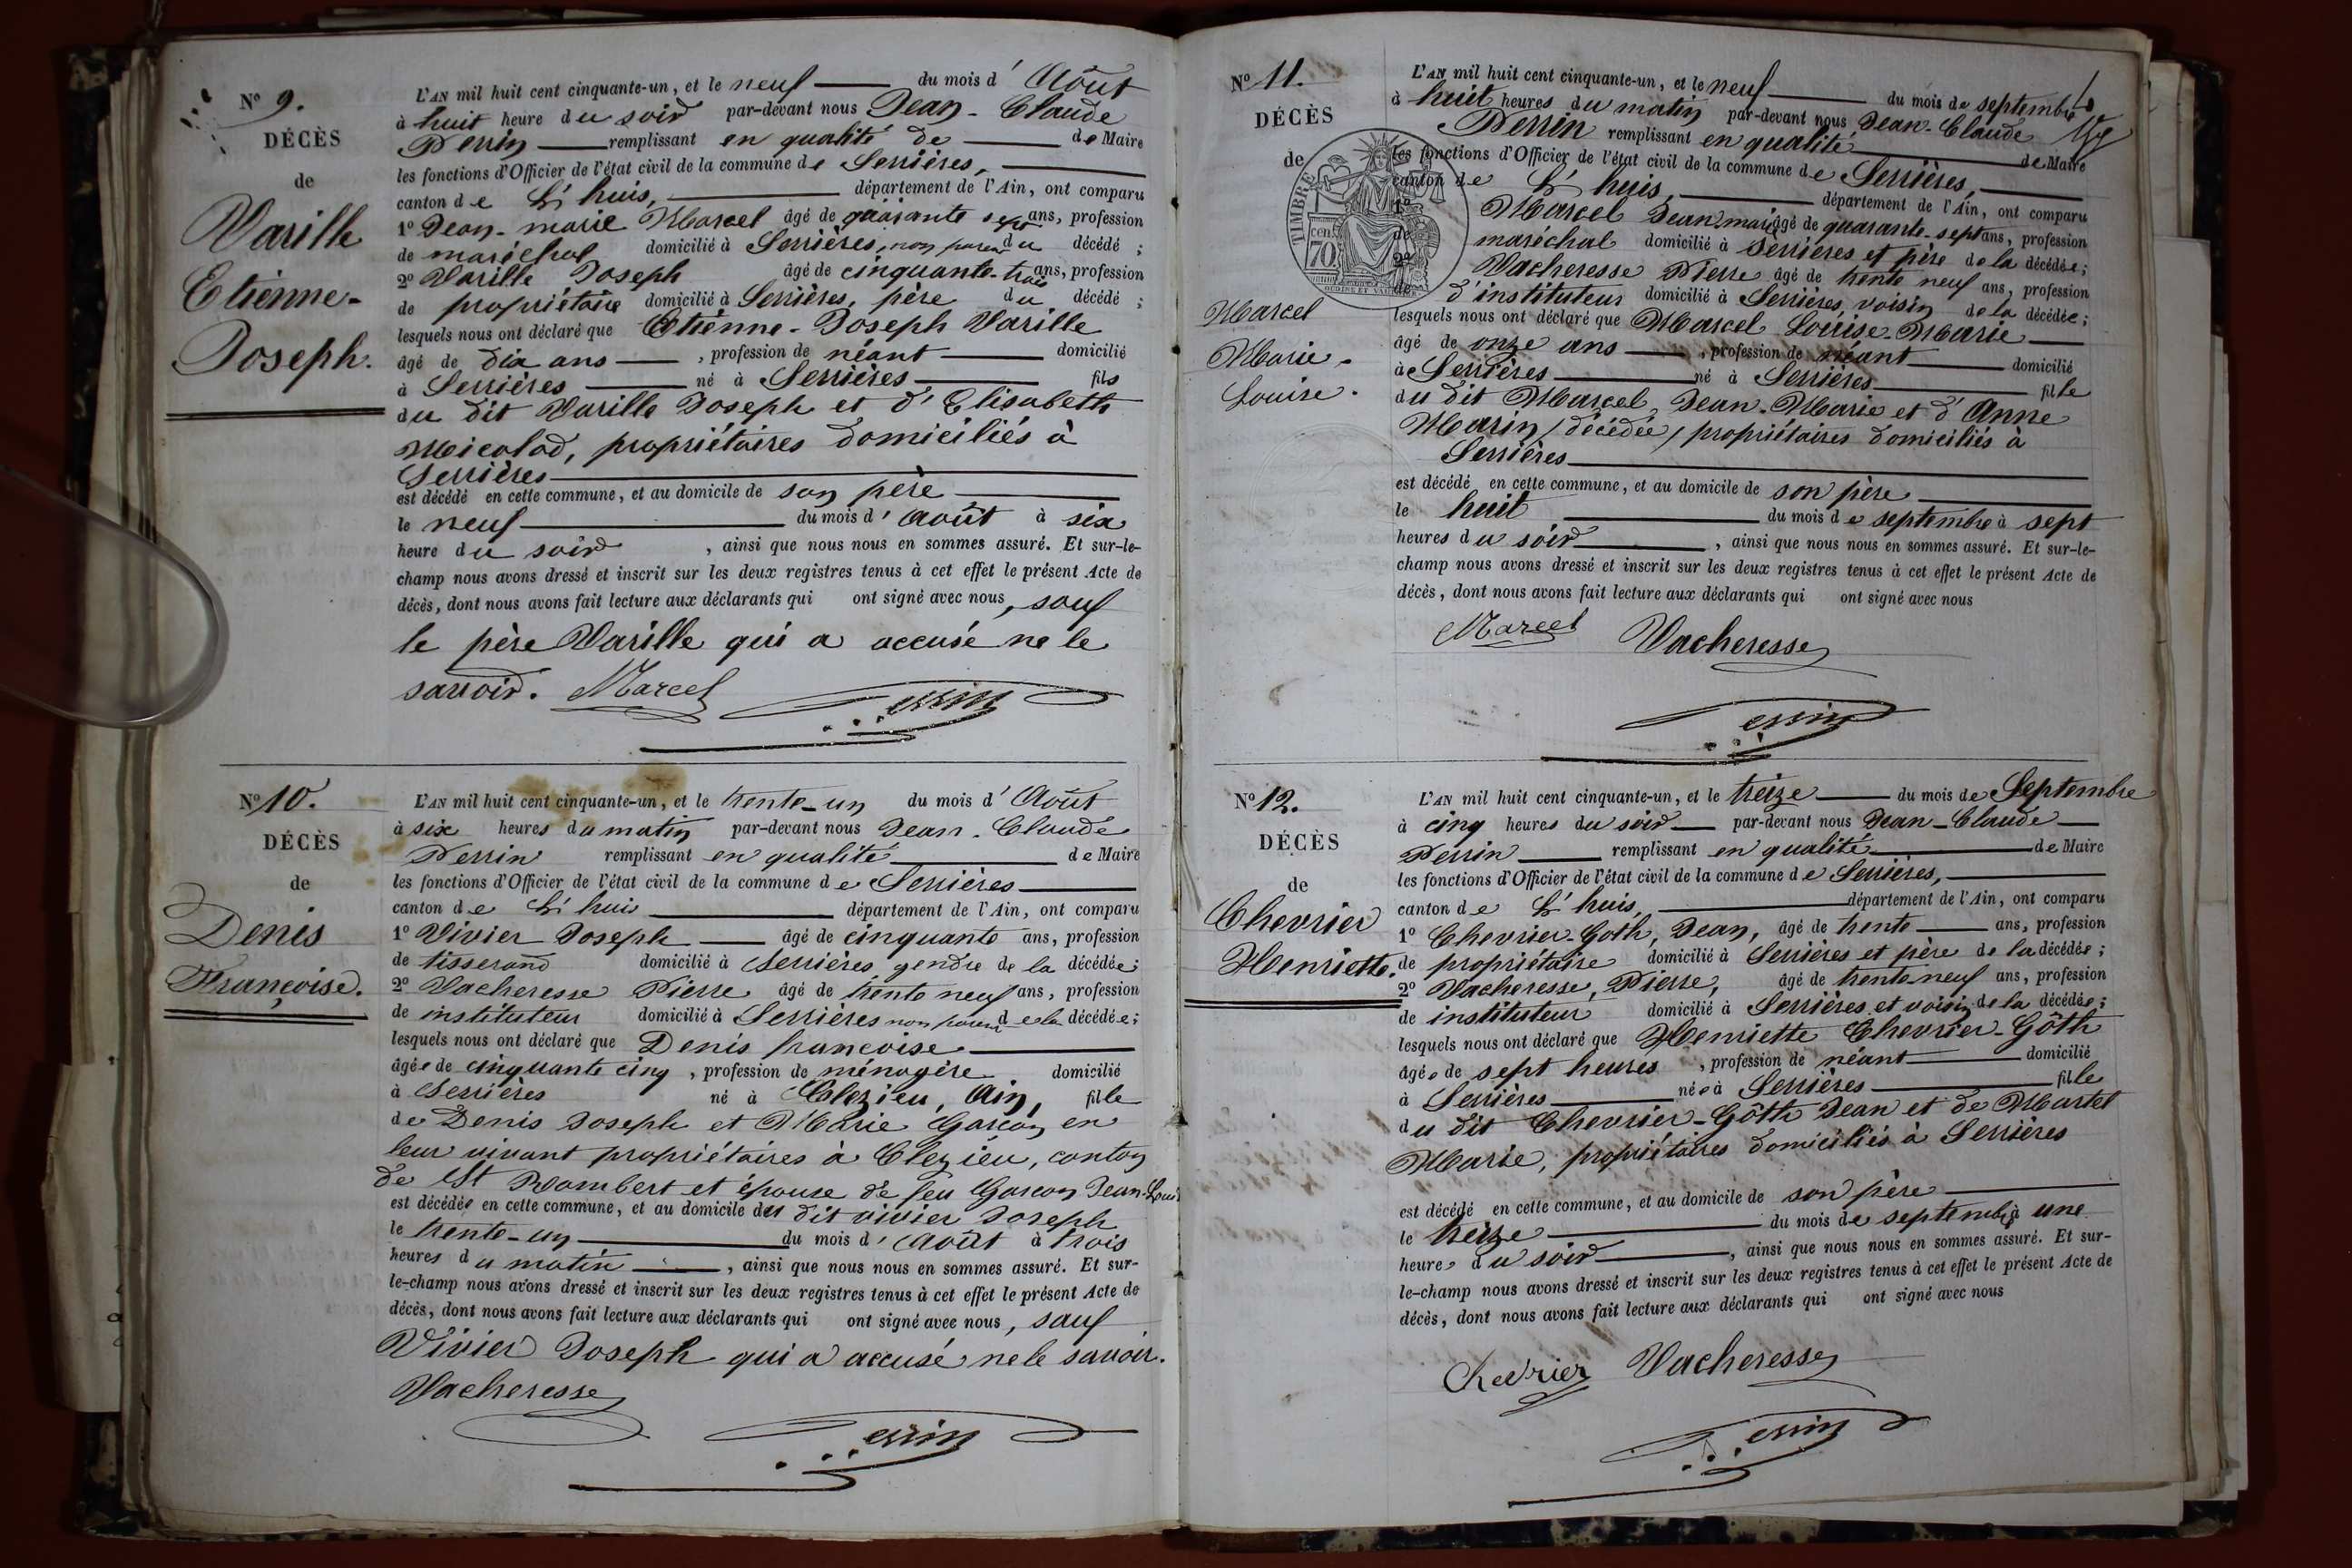 N° 9.
DÉCÈS
de
Varille
Etienne-
Joseph.
L'AN mil huit cent cinquante-un, et le neuf du mois d' Août
à huit heure du soir par-devant nous Jean-Claude
Perrin remplissant en qualité de de Maire
les fonctions d'Officier de l'état civil de la commune de Serrières,
canton de L'huis, département de l'Ain, ont comparu
1° Jean-marie Marcel âgé de quarante sept ans, profession
de maréchal domicilié à Serrières, non parent du décédé ;
2° Varille Joseph âgé de cinquante-trois ans, profession
de propriétaire domicilié à Serrières, père du décédé ;
lesquels nous ont déclaré que Etienne-Joseph Varille
âgé de dix ans , profession de néant domicilié
à Serrières né à Serrières fils
du dit Varille Joseph et d'Elisabeth
Micolod, propriétaires domiciliés à
Serrières
est décédé en cette commune, et au domicile de son père
le neuf du mois d' août à six
heure du soir , ainsi que nous nous en sommes assuré. Et sur-le-
champ nous avons dressé et inscrit sur les deux registres tenus à cet effet le présent Acte de
décès, dont nous avons fait lecture aux déclarants qui ont signé avec nous, sauf
le père Varille qui a accusé ne le
savoir. Marcel Perrin
N° 10.
DÉCÈS
de
Denis
Françoise.
L'AN mil huit cent cinquante-un, et le trente-un du mois d' Août
à six heures du matin par-devant nous Jean-Claude
Perrin remplissant en qualité de Maire
les fonctions d'Officier de l'état civil de la commune de Serrières
canton de L'huis département de l'Ain, ont comparu
1° Vivier Joseph âgé de cinquante ans, profession
de tisserand domicilié à Serrières gendre de la décédée;
2° Vacheresse Pierre âgé de trente neuf ans, profession
de instituteur domicilié à Serrières non parent de la décédée;
lesquels nous ont déclaré que Denis françoise
âgée de cinquante cinq , profession de ménagère domicilié
à Serrières né à Cleyzieu, Ain, fille
de Denis Joseph et Marie Garçon en
leur vivant propriétaires à Cleyzieu, canton
de St Rambert et épouse de feu Garcon Jean-Louis
est décédée en cette commune, et au domicile du dit vivier Joseph
le trente-un du mois d' août à trois
heures du matin , ainsi que nous nous en sommes assuré. Et sur-
le-champ nous avons dressé et inscrit sur les deux registres tenus à cet effet le présent Acte de
décès, dont nous avons fait lecture aux déclarants qui ont signé avec nous, sauf
Vivier Joseph qui a accusé ne le savoir.
Vacheresse
Perrin
N° 11.
DÉCÈS
de
Marcel
Marie-
Louise.
TIMBRE
70
L'AN mil huit cent cinquante-un, et le neuf du mois de septembre
à huit heures du matin par-devant nous Jean-Claude
Perrin remplissant en qualité de Maire
les fonctions d'Officier de l'état civil de la commune de Serrières,
canton de L'huis, département de l'Ain, ont comparu
1° Marcel Jean-marie âgé de quarante-sept ans, profession
de maréchal domicilié à Serrières et père de la décédée;
2° Vacheresse Pierre âgé de trente neuf ans, profession
de d'instituteur domicilié à Serrières, voisin de la décédée;
lesquels nous ont déclaré que Marcel Louise-Marie
âgé de onze ans , profession de néant domicilié
à Serrières né à Serrières fille
du dit Marcel Jean-Marie et d'Anne
Marin (décédée) propriétaires domiciliés à
Serrières
est décédé en cette commune, et au domicile de son père
le huit du mois de septembre à sept
heures du soir , ainsi que nous nous en sommes assuré. Et sur-le-
champ nous avons dressé et inscrit sur les deux registres tenus à cet effet le présent Acte de
décès, dont nous avons fait lecture aux déclarants qui ont signé avec nous
Marcel Vacheresse
Perrin
N° 12.
DÉCÈS
de
Chevrier
Henriette.
L'AN mil huit cent cinquante-un, et le treize du mois de Septembre
à cinq heures du soir par-devant nous Jean-Claude
Perrin remplissant en qualité de Maire
les fonctions d'Officier de l'état civil de la commune de Serrières,
canton de L'huis, département de l'Ain, ont comparu
1° Chevrier-Goth, Jean, âgé de trente ans, profession
de propriétaire domicilié à Serrières et père de la décédée ;
2° Vacheresse, Pierre, âgé de trente neuf ans, profession
de instituteur domicilié à Serrières et voisin de la décédée ;
lesquels nous ont déclaré que Henriette Chevrier-Gôth
âgée de sept heures , profession de néant domicilié
à Serrières née à Serrières fille
du dit Chevrier-Gôth Jean et de Martel
Marie, propriétaires domiciliés à Serrières
est décédé en cette commune, et au domicile de son père
le treize du mois de septembre à une
heure du soir , ainsi que nous nous en sommes assuré. Et sur-
le-champ nous avons dressé et inscrit sur les deux registres tenus à cet effet le présent Acte de
décès, dont nous avons fait lecture aux déclarants qui ont signé avec nous
Chevrier Vacheresse
Perrin